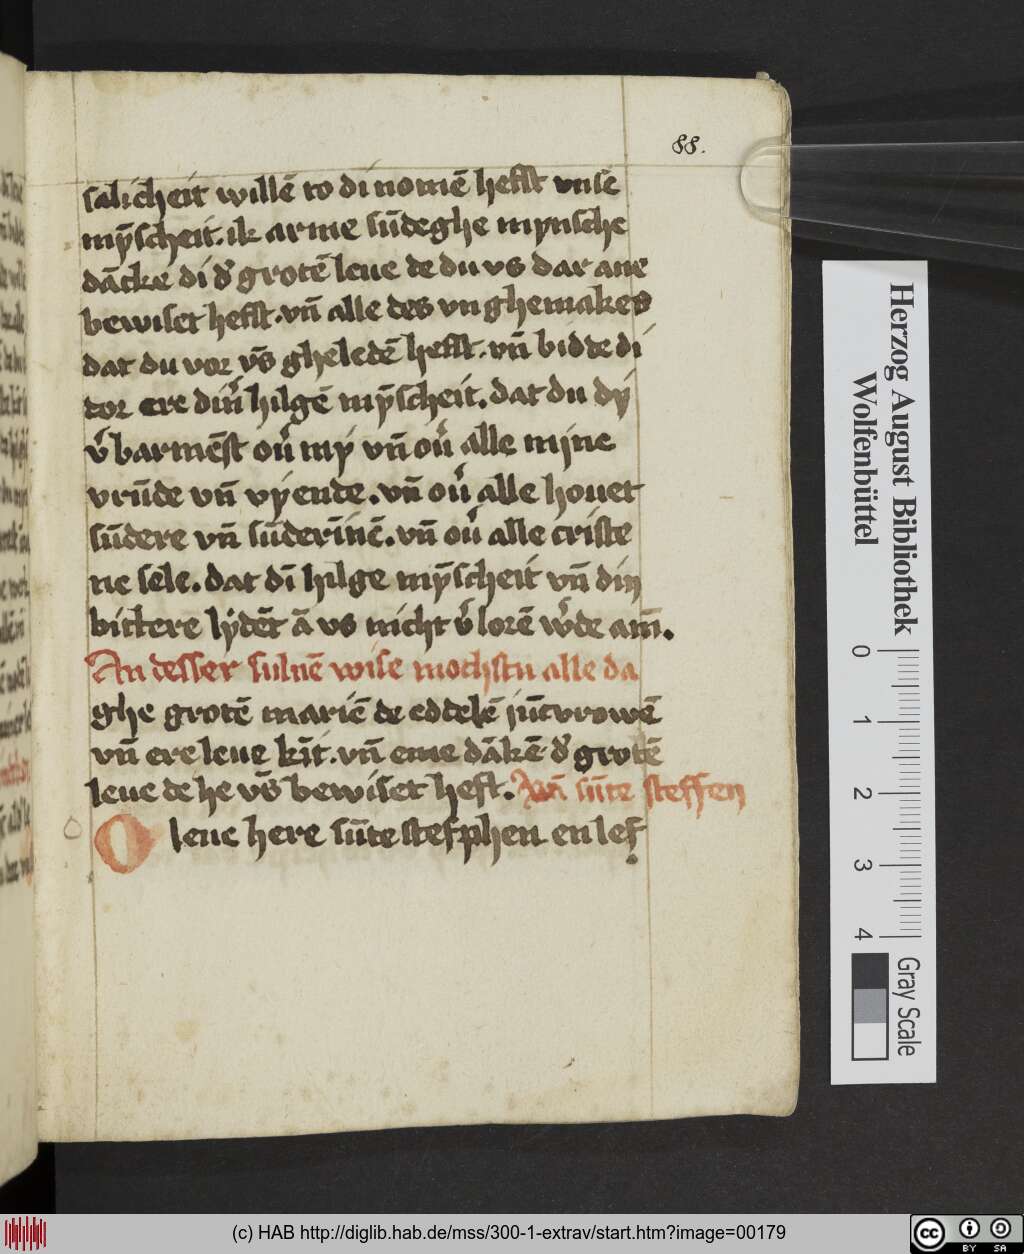 88.
salicheit willē to di nomē hefft vnse
mȳscheit. ik arme sūdeghe mynsche
dācke di dʾ grotē leue de du vs dar ane
bewiset hefft. vn̄ alle des vnghemakes
dat du vor vs̄ gheledē hefft. vn̄ bidde di
dor ere dinʾ hilgē mȳscheit. dat du dy
vʾbarmest ouʾ my vn̄ ouʾ alle mine
vrūde vn̄ vyende. vn̄ ouʾ alle houet
sūdere vn̄ sūderīnē. vn̄ ouʾ alle criste
ne sele. dat dī hilge mȳscheit vn̄ din
bittere lydēt ā vs nicht vʾlorē wʾde am̄.
An desser suluē wise mochstu alle da
ghe grotē mariē de eddelē jūcvrowē
vn̄ ere leue kīt. vn̄ eme dākē dʾ grotē
leue de he vs̄ bewiset heft. Vā sūte steffen
O leue here sūte stefphen en lef
Herzog August Bibliothek
Wolfenbüttel
0 1 2 3 4
Gray Scale
(c) HAB http://diglib.hab.de/mss/300-1-extrav/start.htm?image=00179
cc BY SA